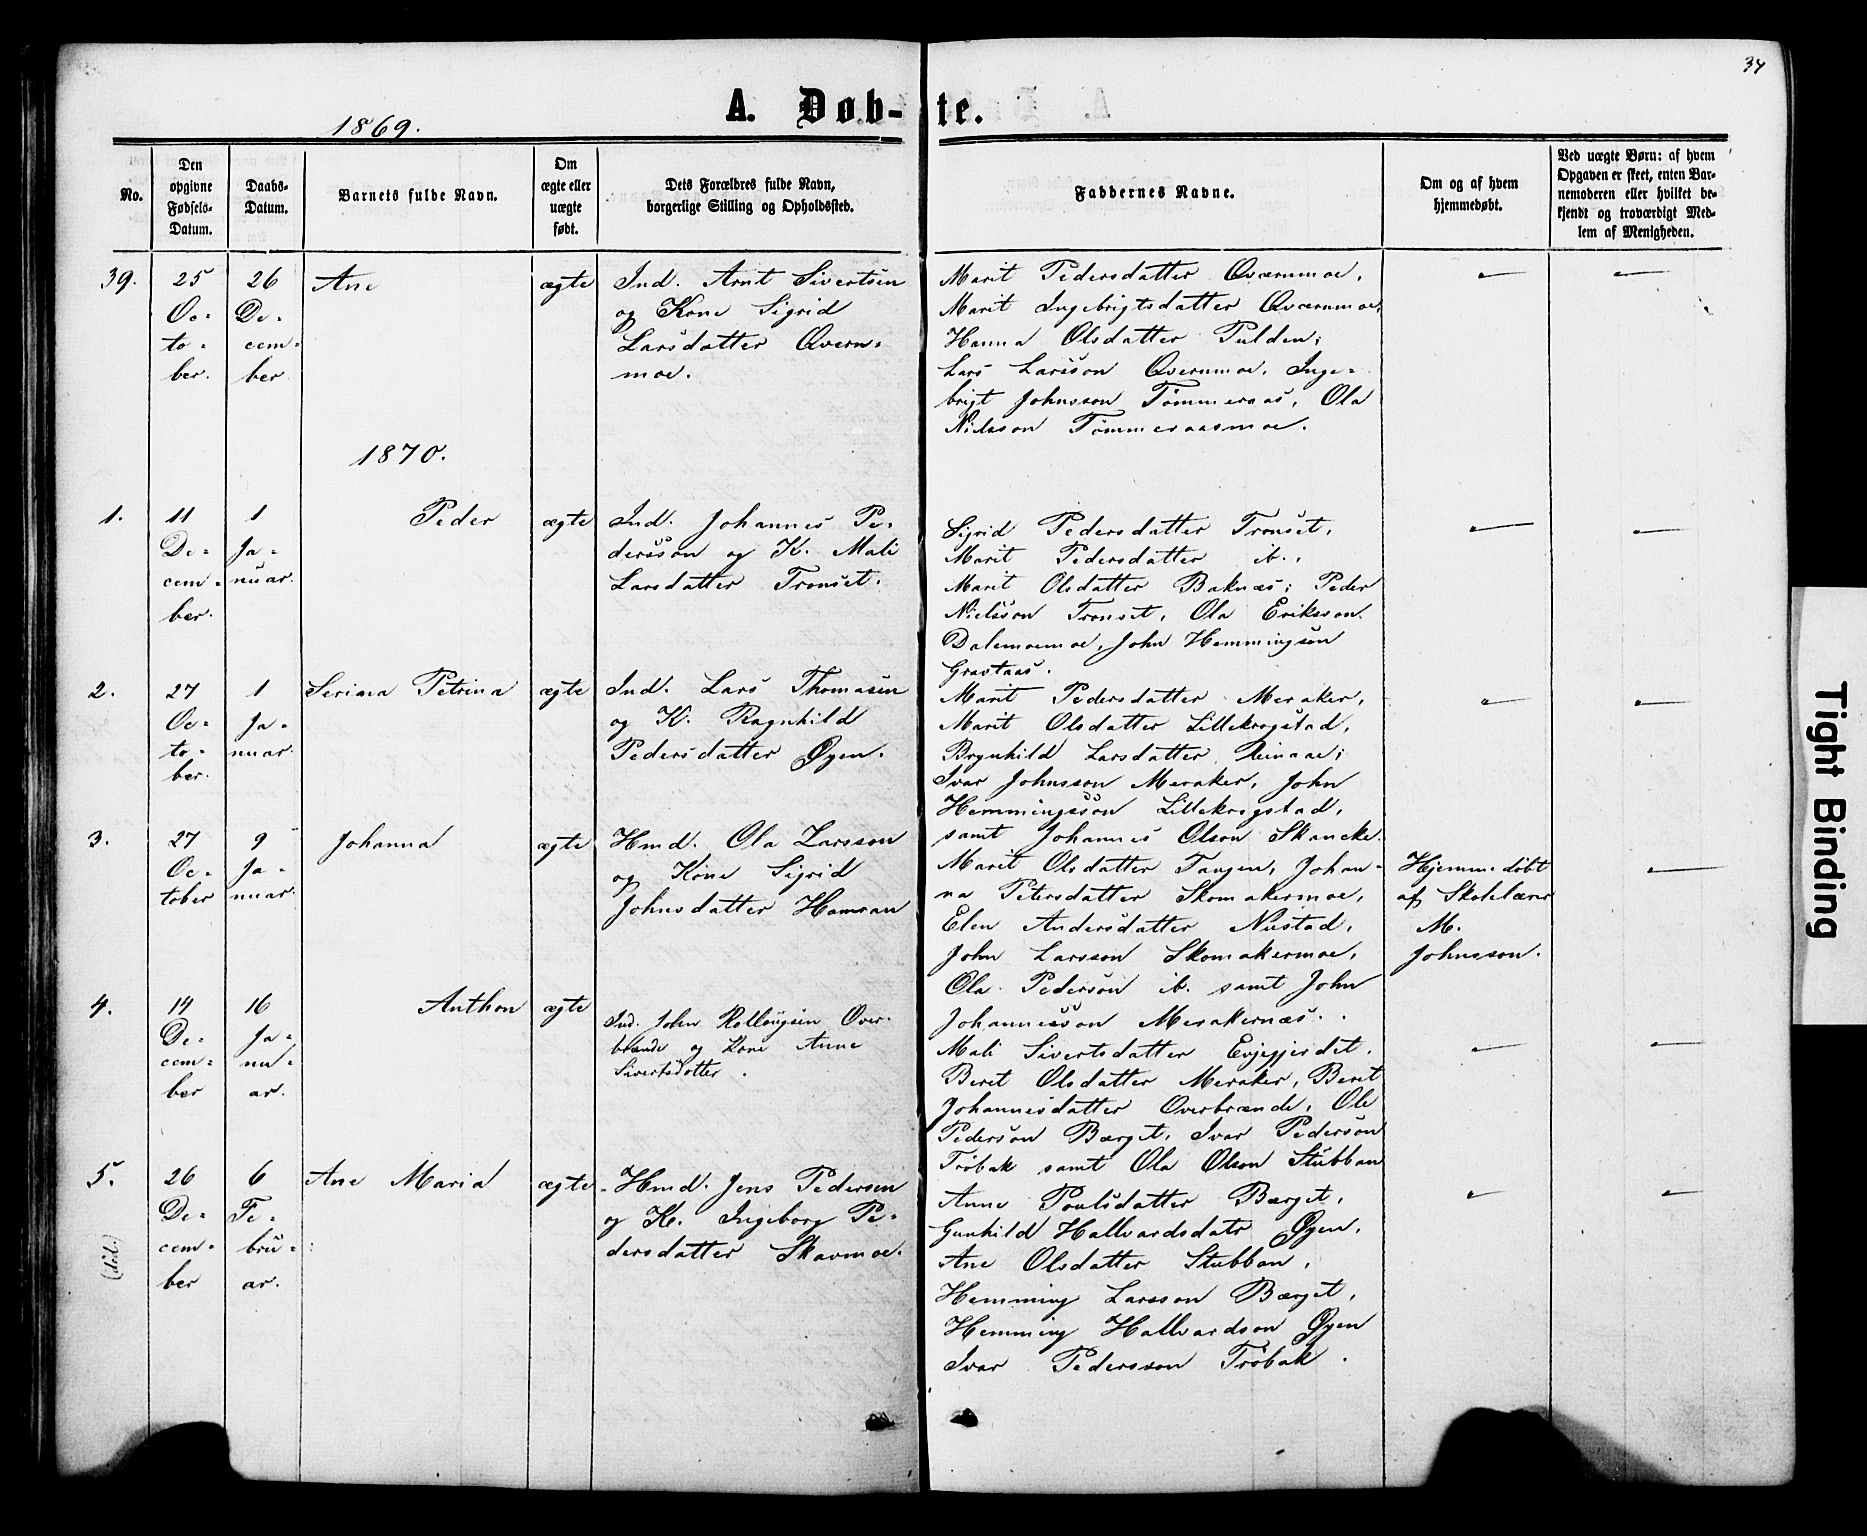 34
A. Døb-te.
1869.
No.
Den
opgivne
Fødsels-
Datum.
Daabs-
Datum.
Barnets fulde Navn.
Om
ægte eller
uægte
født.
Dets Forældres fulde Navn,
borgerlige Stilling og Opholdssted.
Faddernes Navne.
Om og af hvem
hjemmedøbt.
Ved uægte Børn: af hvem
Opgaven er skeet, enten Bar-
nemoderen eller hvilket be-
kjendt og troværdigt Med-
lem af Menigheden.
39.
25
Oc-
to-
ber.
26
De-
cem-
ber
Ane
ægte
Ind. Arnt Sivertsen
og Kone Sigrid
Larsdatter Qvern-
moe.
Marit Pedersdatter Qværnmoe,
Marit Ingebrigtsdatter Qværnmoe,
Hanna Olsdatter Pulden;
Lars Larsson Qvernmoe, Inge-
brigt Johnsson Tømmeraas, Ola
Nielsson Tømmeraasmoe.
1870.
1.
11
De-
cem-
ber.
1
Ja-
nuar.
Peder
ægte
Ind. Johannes Pe-
dersson og K. Mali
Larsdatter Tronset.
Sigrid Pedersdatter Tronset,
Marit Pedersdatter ib.,
Marit Olsdatter Baknæs; Peder
Nielsson Tronset, Ola Eriksson
Dalemoemoe, John Hemmingsøn
Gravtaas.
2.
27
Oc-
to-
ber.
1
Ja-
nuar.
Serina Petrina
ægte
Ind. Lars Thomasen
og K. Ragnhild
Pedersdatter Øyen.
Marit Pedersdatter Meraker,
Marit Olsdatter Lillekrogstad,
Brynhild Larsdatter Reinaae;
Ivar Johnsson Meraker, John
Hemmingssøn Lillekrogstad,
samt Johannes Olson Skancke.
3.
27
Oc-
tober
9
Ja-
nuar.
Johanna
ægte
Hmd. Ola Larsson
og Kone Sigrid
Johnsdatter Hamran
Marit Olsdatter Tangen, Johan-
na Petersdatter Skomakermoe,
Elen Andersdatter Nustad,
John Larsson Skomakermoe,
Ola Pederson ib. samt John
Johannesson Merakernæs.
Hjemmedøbt
af Skolelærer
M.
Johnsson.
4.
14
De-
cem-
ber
16
Ja-
nu-
ar.
Anthon
ægte
Ind. John Rollougsen Over-
brænde og Kone Anne
Sivertsdatter.
Mali Sivertsdatter Evjegjerdet,
Beret Olsdatter Meraker, Beret
Johannesdatter Overbrænde, Ole
Pederson Bærget, Ivar Pederson
Trøbak samt Ola Olson Stubban
5.
(död.)
26
De-
cem-
ber
6
Fe-
bru-
ar.
Ane Maria
ægte
Hmd. Jens Pedersen
og K. Ingeborg Pe-
dersdatter Skavmoe.
Anne Poulsdatter Bærget,
Gunhild Hallvardsdatr Øyen,
Ane Olsdatter Stubban,
Hemming Larsson Bærget,
Hemming Hallvardson Øyen
Ivar Pedersson Trøbak.
Tight Binding